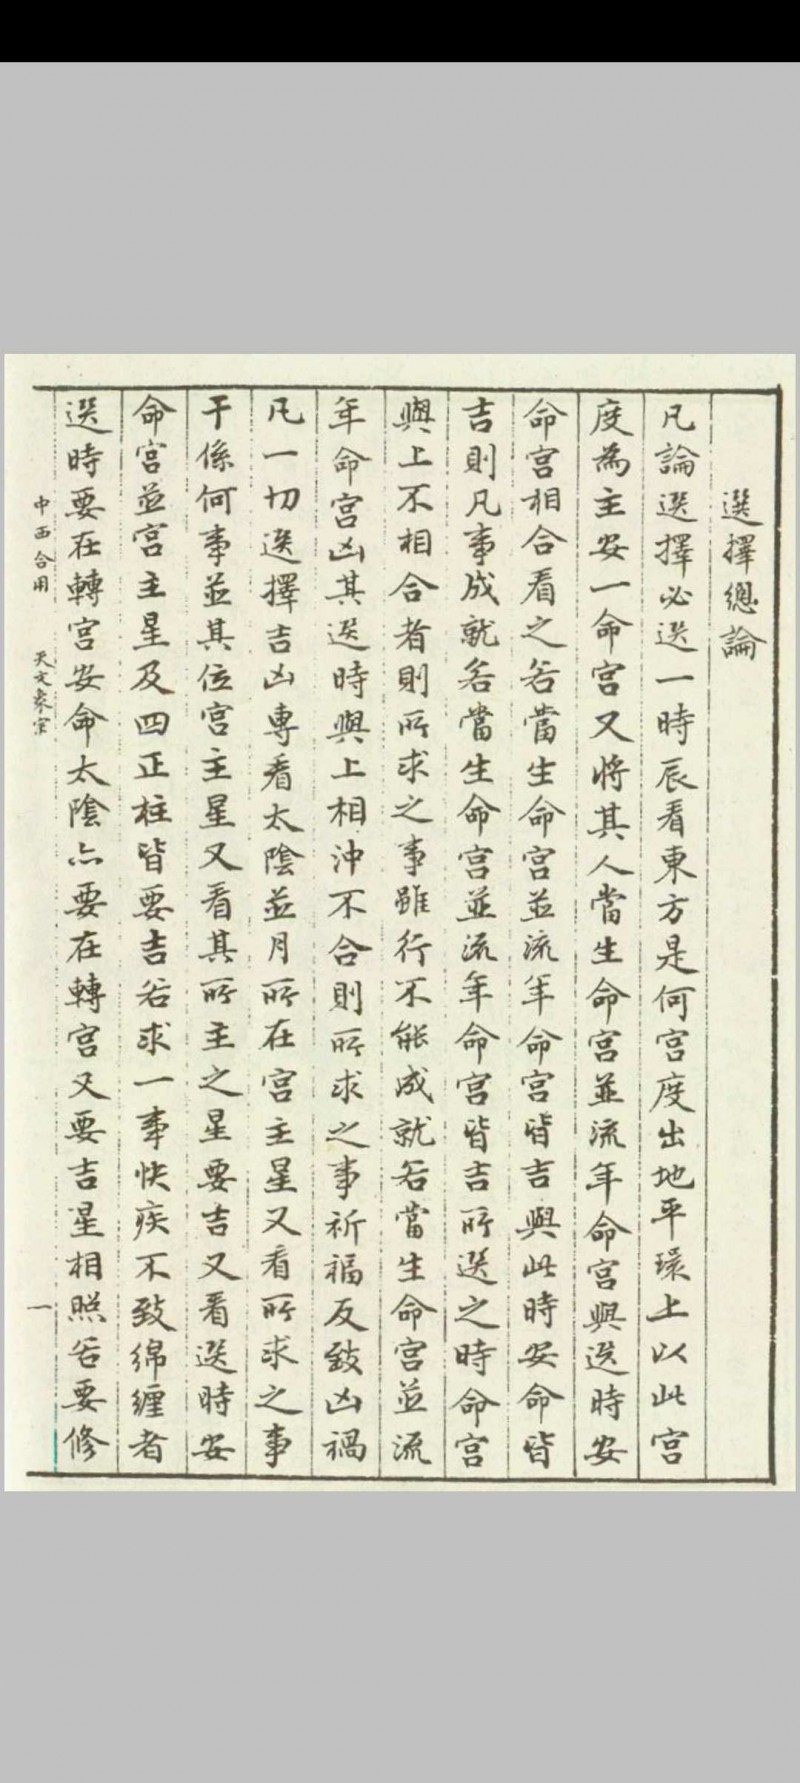 選擇總論
凡論选擇必选一時辰看東方是何宮度出地平環上以此宮
度為主安一命宮又将其人當生命宮並流年命宮與选時安
命宮相合看之若當生命宮並流年命宮皆吉與此時安命皆
吉則凡事成就若當生命宮並流年命宮皆吉所选之時命宮
與上不相合者則所求之事雖行不能成就若當生命宮並流
年命宮凶其选時與上相沖不合則所求之事祈福反致凶禍
凡一切选擇吉凶專看太陰並月所在宮主星又看所求之事
干係何事並其位宮主星又看其所主之星要吉又看选時安
命宮並宮主星及四正柱皆要吉若求一事快疾不致綿纏者
选時要在轉宮安命太陰亦要在轉宮又要吉星相照若要修
中西合用
天文象宗
一